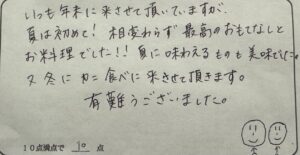 いつも年末に来させて頂いていますが、
夏は初めて！相変わらず最高のおもてなしと
お料理でした！！夏に味わえるものも美味でした。
又冬にカニ食べに来させて頂きます。
有難うございました。
10点満点で 10 点